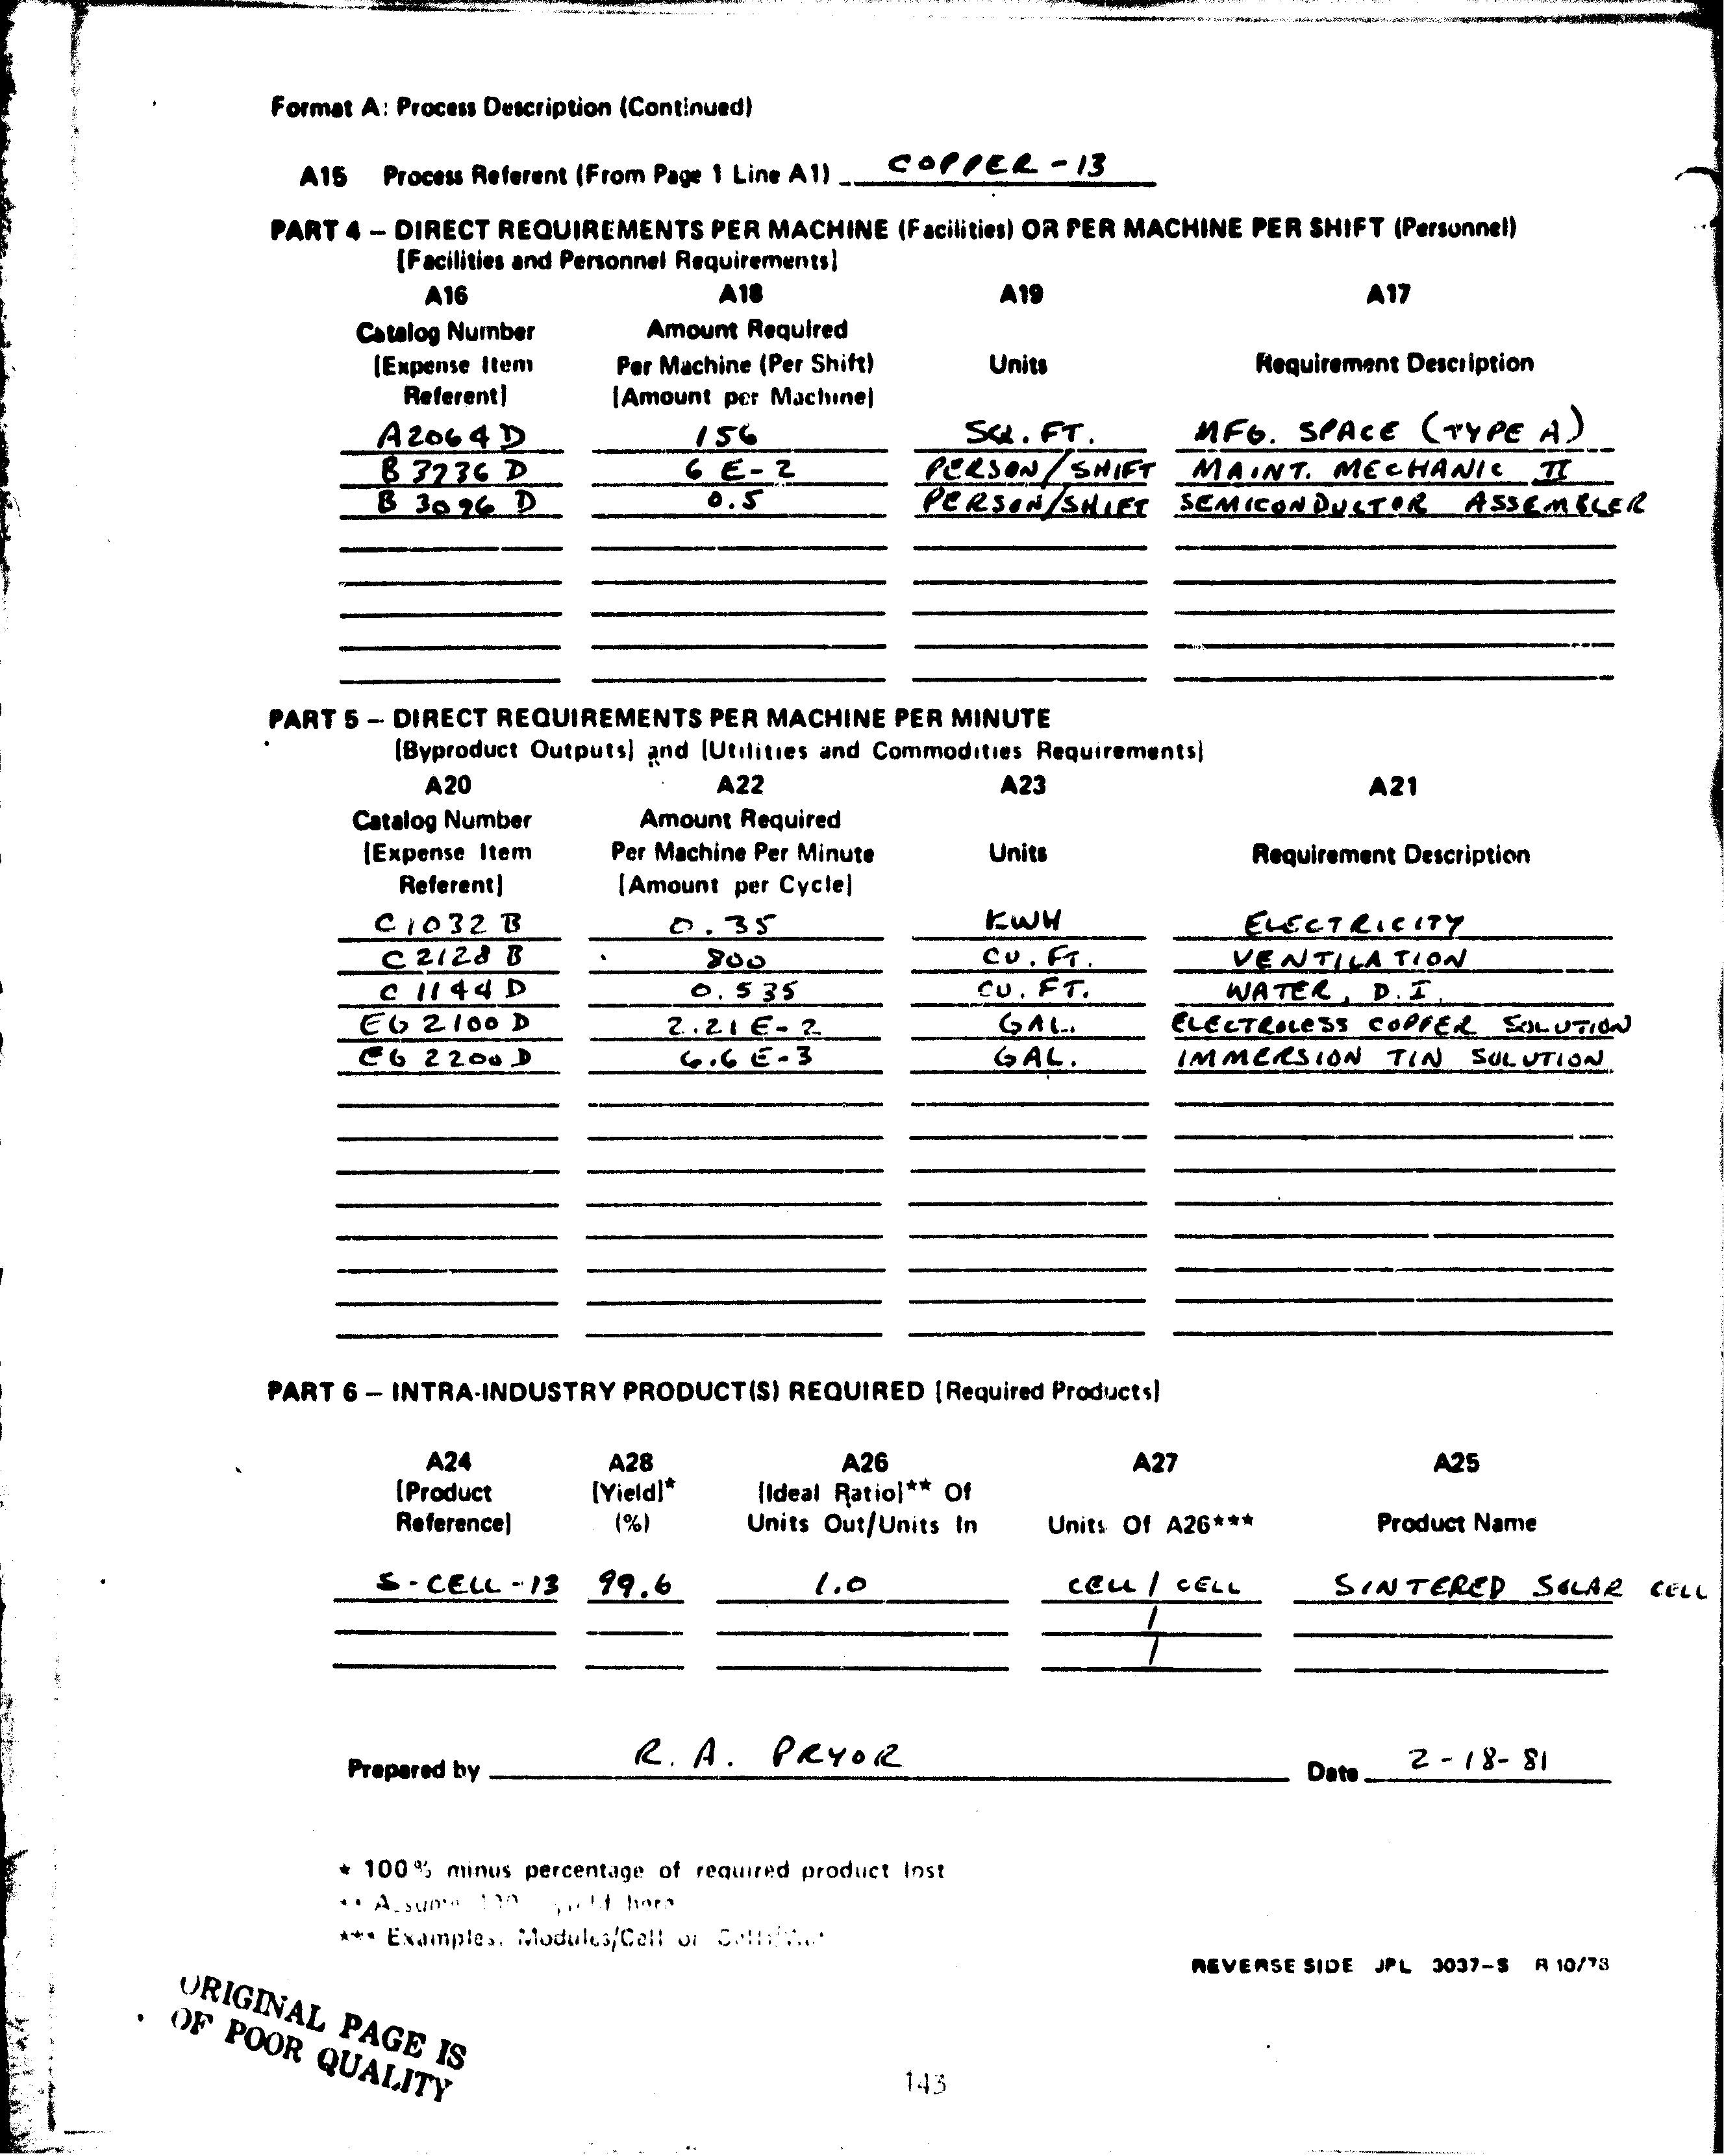 Format A: Process Description (Continued)
A15 Process Referent (From Page 1 Line A1) COPPER-13
PART 4 – DIRECT REQUIREMENTS PER MACHINE (Facilities) OR PER MACHINE PER SHIFT (Personnel)
[Facilities and Personnel Requirements]
A16 A18 A19 A17
Catalog Number Amount Required
[Expense Item Per Machine (Per Shift) Units Requirement Description
Referent] [Amount per Machine]
A2064D 156 SQ. FT. MFG. SPACE (TYPE A)
B3736D 6 E-2 PERSON/SHIFT MAINT. MECHANIC II
B3096D 0.5 PERSON/SHIFT SEMICONDUCTOR ASSEMBLER
PART 5 – DIRECT REQUIREMENTS PER MACHINE PER MINUTE
[Byproduct Outputs] and [Utilities and Commodities Requirements]
A20 A22 A23 A21
Catalog Number Amount Required
[Expense Item Per Machine Per Minute Units Requirement Description
Referent] [Amount per Cycle]
C1032B 0.35 KWH ELECTRICITY
C2128B 800 CU. FT. VENTILATION
C1144D 0.535 CU. FT. WATER, D.I.
EG2100D 2.21 E-2 GAL. ELECTROLESS COPPER SOLUTION
EG2200D 6.6 E-3 GAL. IMMERSION TIN SOLUTION
PART 6 – INTRA-INDUSTRY PRODUCT(S) REQUIRED [Required Products]
A24 A28 A26 A27 A25
[Product [Yield]* [Ideal Ratio]** Of
Reference] (%) Units Out/Units In Units Of A26*** Product Name
S-CELL-13 99.6 1.0 CELL / CELL SINTERED SOLAR CELL
/
/
Prepared by R. A. PRYOR Date 2-18-81
* 100% minus percentage of required product lost
** Assume here
*** Examples: Modules/Cell or
REVERSE SIDE JPL 3037-S R 10/78
ORIGINAL PAGE IS
OF POOR QUALITY
143